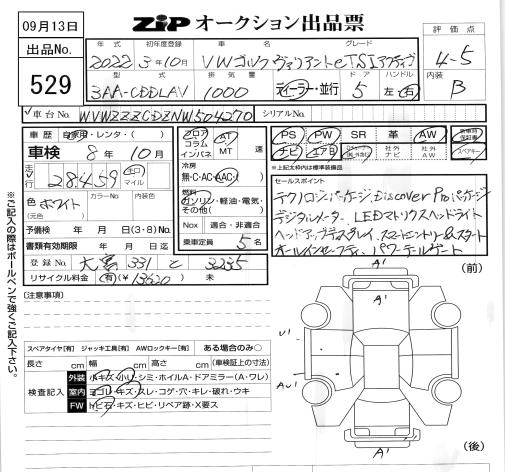 09月13日
ZIP オークション出品票
出品No.
529
年式 初年度登録 車名 グレード
2022 3年10月 VWゴルフ ヴァリアントeTSIアクティブ
型式 排気量 ドア ハンドル
3AA-CDDLAV 1000 ディーラー・並行 5 左・右
評価点
4-5
内装
B
車台No. WVWZZZCDZNW504270 シリアルNo.
車歴 自家用・レンタ・( )
車検 8年 10月
走行 28,459 km マイル
色 ホワイト (元色) カラーNo 内装色
予備検 年 月 日(3・8)No.
書類有効期限 年 月 日迄
登録No. 大宮 331 と 3235
リサイクル料金 (有)(¥13620) 未
フロア コラム インパネ AT MT 速
冷房
無・C・AC・AAC
燃料
ガソリン・軽油・電気・その他( )
Nox 適合・非適合
乗車定員 5 名
PS PW SR 革 AW
ナビ エアB 社外ナビ 社外AW
*上記太枠内は標準装備品
セールスポイント
テクノロジーパッケージ、Discover Proパッケージ
デジタルメーター、LEDマトリクスヘッドライト
ヘッドアップディスプレイ、スマートエントリー&スタート
オールインセーフティ、パワーテールゲート
※ご記入の際はボールペンで強くご記入下さい。
[注意事項]
スペアタイヤ[有] ジャッキ工具[有] AWロックキー[有] ある場合のみ○
長さ cm 幅 cm 高さ cm (車検証上の寸法)
検査記入
外装 小キズ・小U・シミ・ホイルA・ドアミラー(A・ワレ)
室内 ヨゴレ・キズ・スレ・コゲ・穴・キレ・破れ・ウキ
FW トビ石・キズ・ヒビ・リペア跡・X要ス
(前)
A'
A'
U'
AU'
A'
A'
(後)